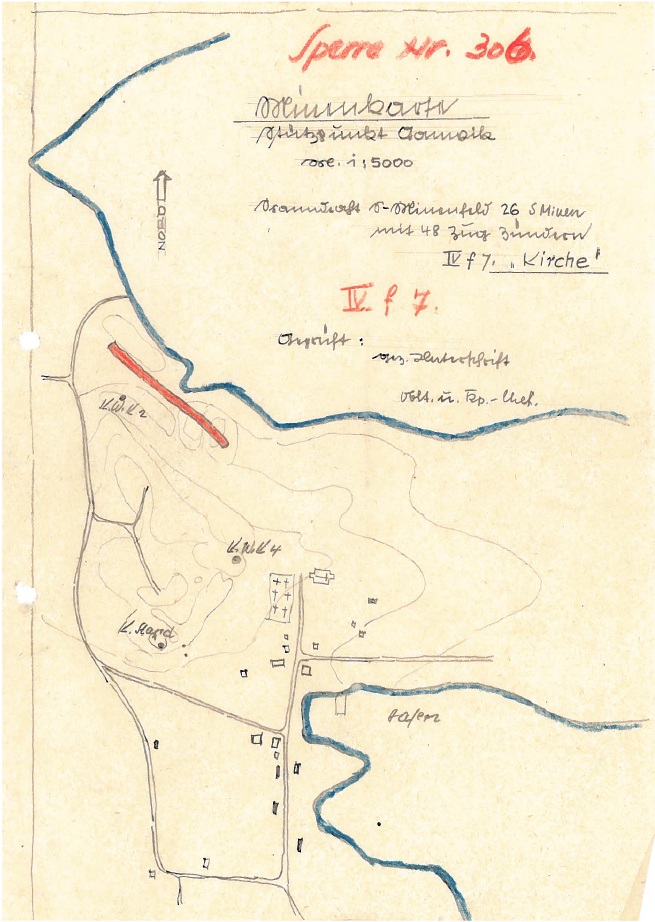 Sperre Nr. 306.
Minenkarte
Stützpunkt Gamvik
1:5000
NORD
S-Minenfeld 26 S Minen
mit 48 Zug Zündern
IV f 7. „Kirche"
IV f 7.
Geprüft:
gez. Unterschrift
Oblt. u. Kp.-Chef.
K.W.K 2
K.W.K 4
K. Stand
Hafen